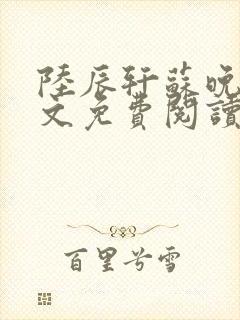 陸辰軒蘇晚
文免費閱讀
百里兮雪